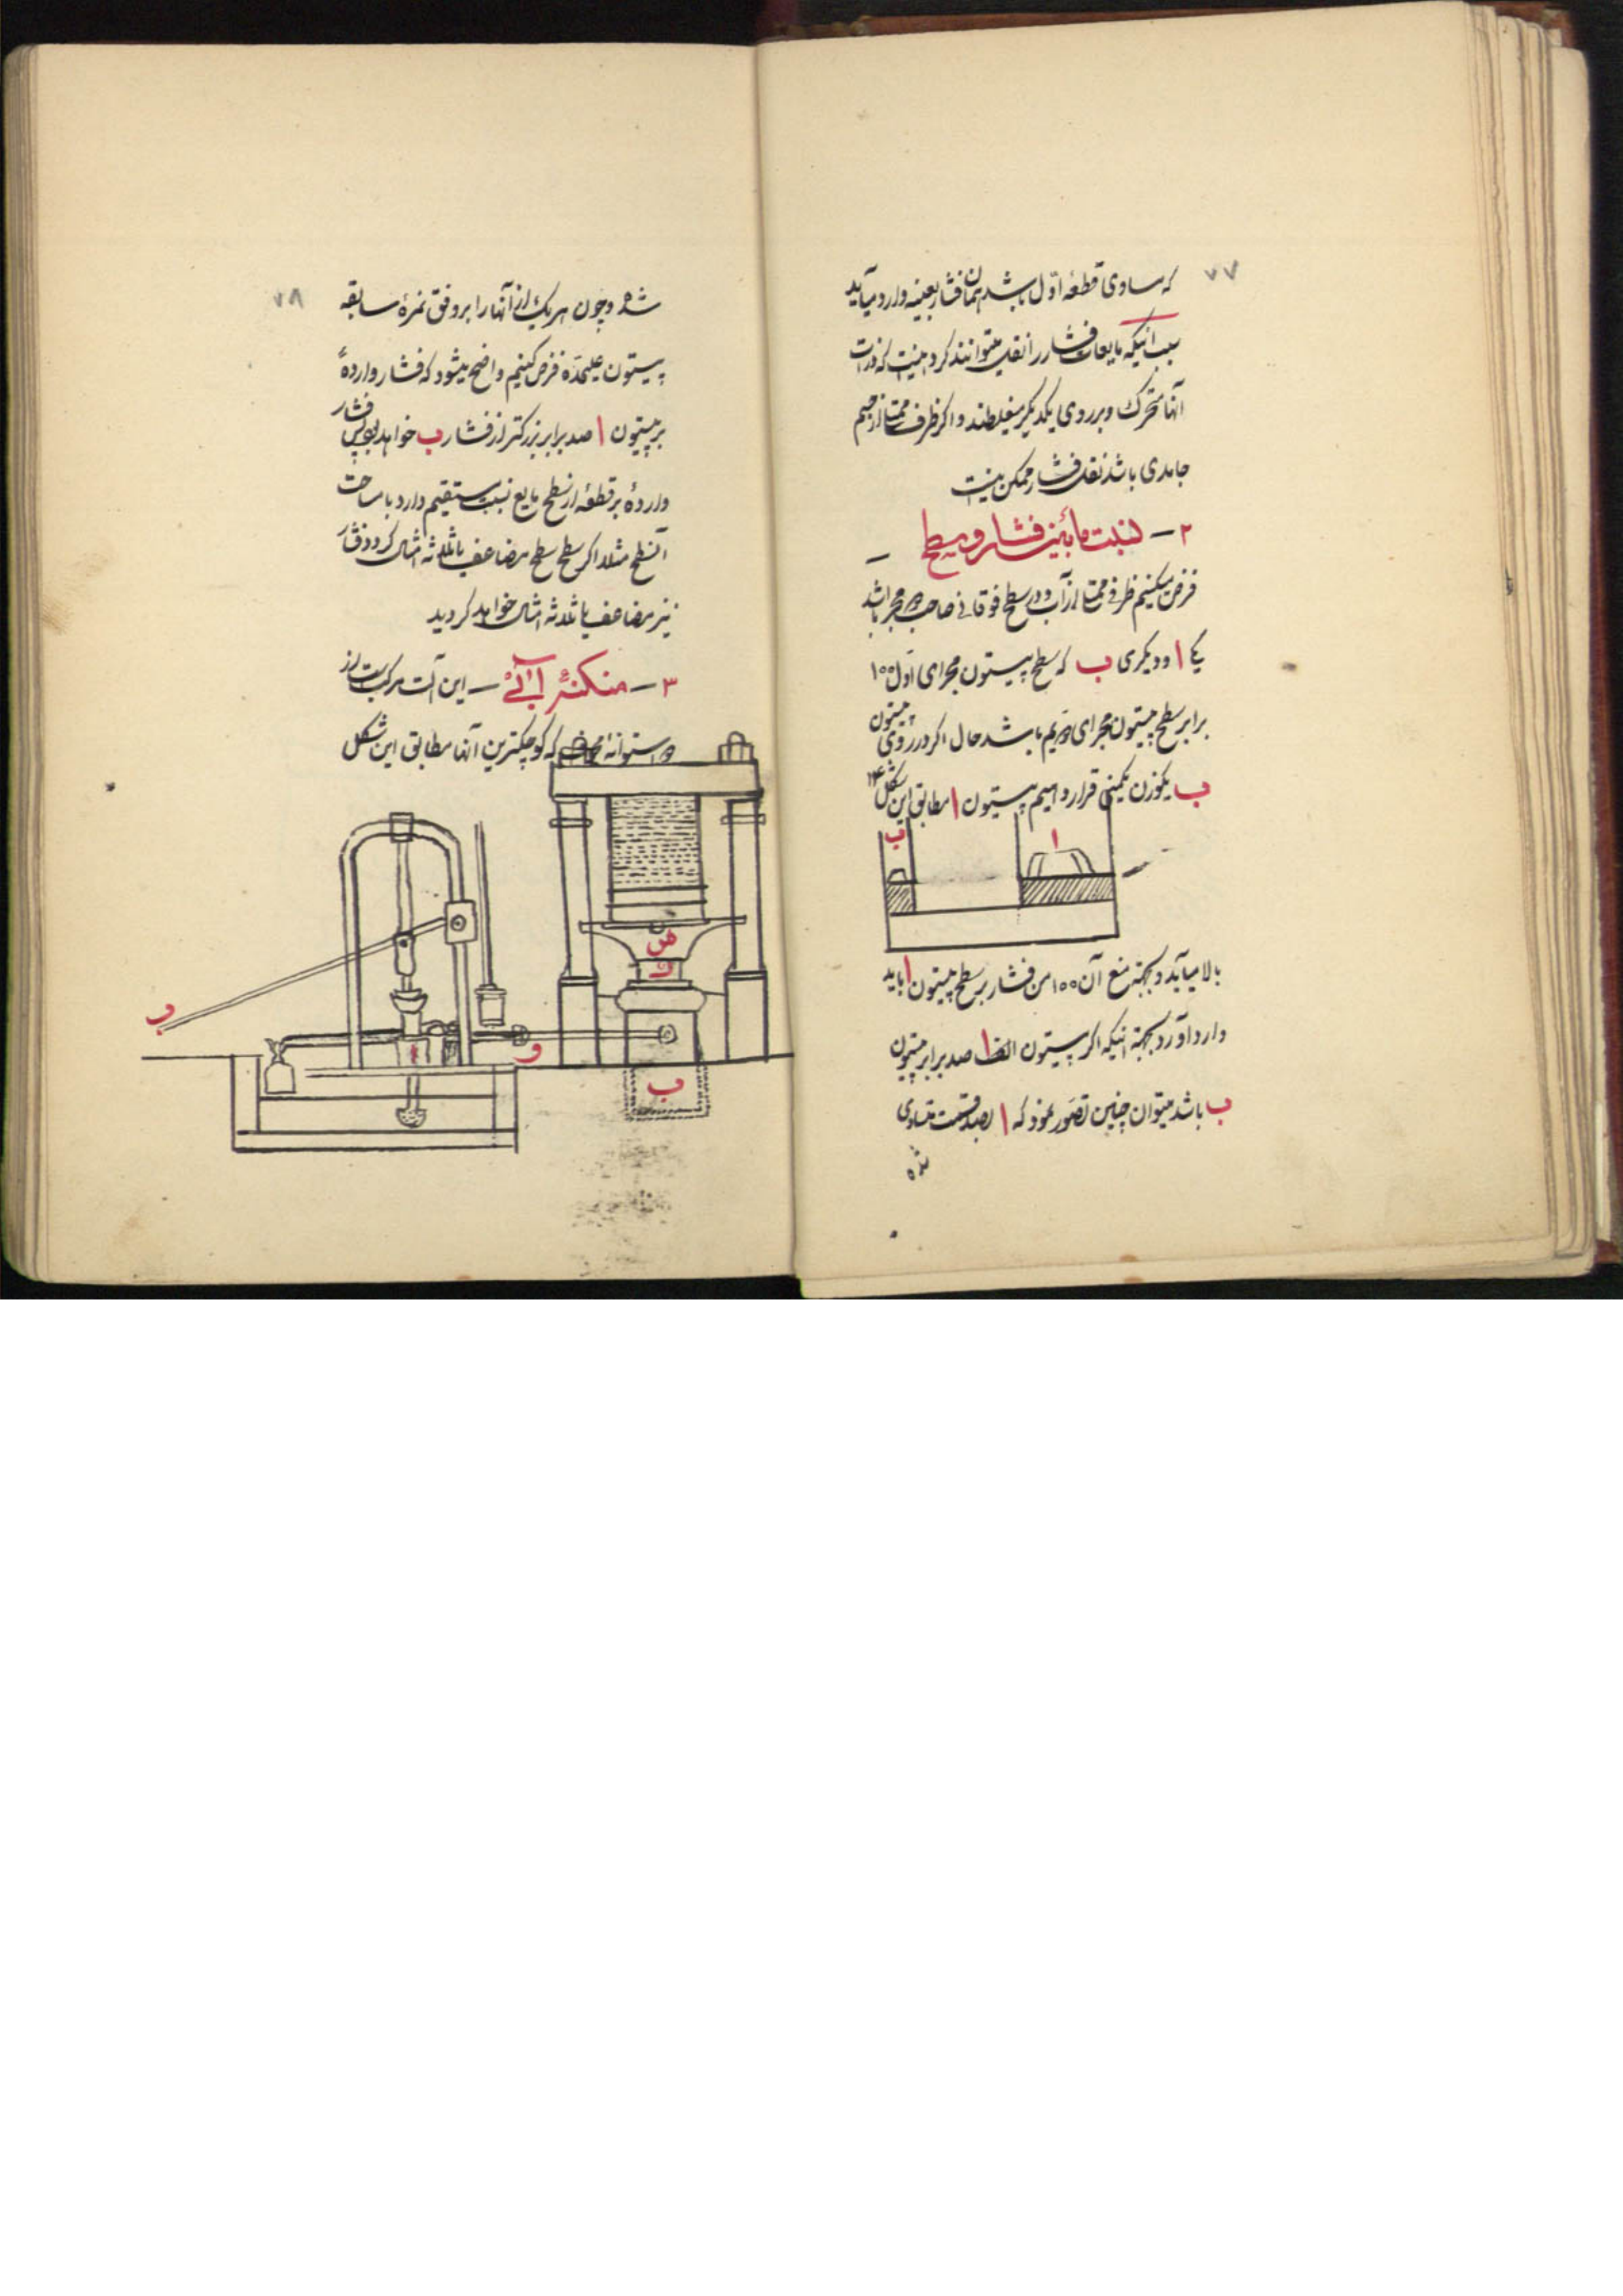 ۷۷
که مساوی قطعهٔ اوّل باشد همان فشار بعینه وارد میآید
سبب اینکه مایعات فشار را نقل میتوانند کرد اینست که ذرات
آنها متحرک و بر روی یکدیگر میغلطند و اگر ظرف ممتلا از جسم
جامدی باشد نقل فشار ممکن نیست
۲ – نسبت مابین فشار و سطح –
فرض میکنیم ظرفی ممتلا از آب و در سطح فوقانی صاحب دو مجرا باشد
یکی ا و دیگری ب که سطح پیستون مجرای اوّل ۱۰۰
برابر سطح پیستون مجرای دویم باشد حال اگر در روی پیستون
ب یکوزن یکمنی قرار دهیم پیستون ا مطابق این شکل ۲۴
ب ا
بالا میآید و بجهة منع آن ۱۰۰ من فشار بر سطح پیستون ا باید
وارد آورد بجهة اینکه اگر پیستون الف ا صد برابر پیستون
ب باشد میتوان چنین تصوّر نمود که ا بصد قسمت متساوی
شده
۷۸
شده و چون هر یک از آنها را بر وفق نمرهٔ سابقه
پیستون علیحدّه فرض کنیم واضح میشود که فشار واردهٔ
بر پیستون ا صد برابر بزرکتر از فشار ب خواهد بود پس فشار
واردهٔ بر قطعهٔ از سطح مایع نسبت مستقیم دارد با مساحت
آنسطح مثلا اگر سطح مضاعف یا ثلاثه امثال کردد فشار
نیز مضاعف یا ثلاثه امثال خواهد کردید
۳ – منکنهٔ آبی – این آلت مرکب است از
دو استوانه مجوف که کوچکترین آنها مطابق این شکل
ص
ب
و
ب